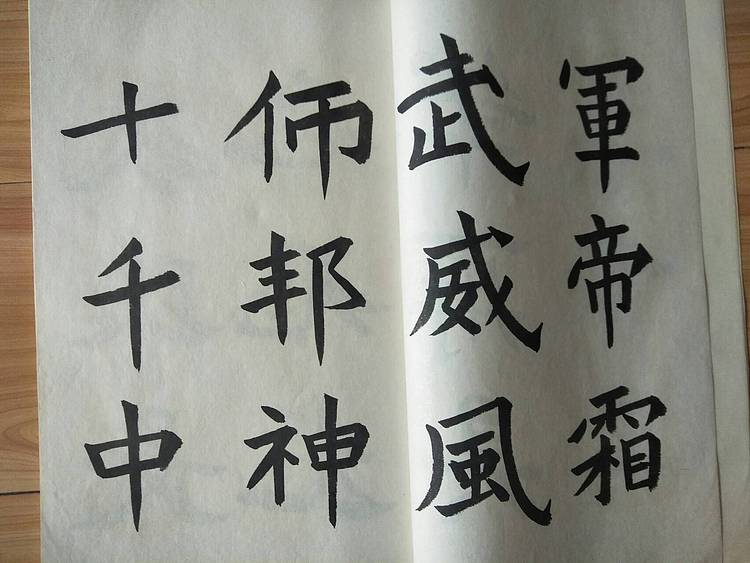 軍帝霜
武威風
师邦神
十千中